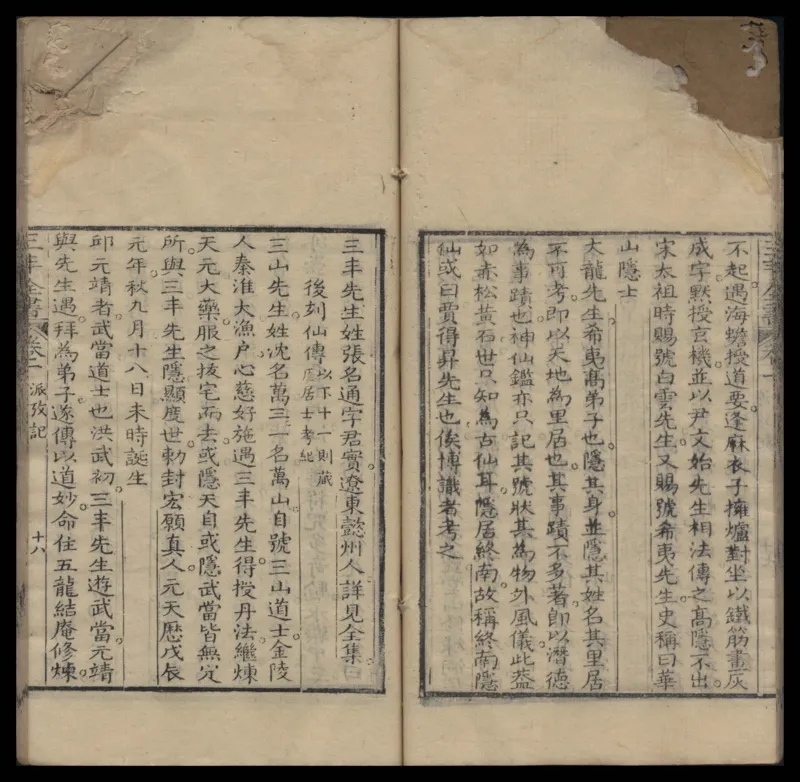 不起遇海蟾授道要逢麻衣子擁爐對坐以鐵筋畫灰
成字默授玄機並以尹文始先生相法傳之高隱不出
宋太祖時賜號白雲先生又賜號希夷先生史稱曰華
山隱士
火龍先生希夷高弟子也隱其身並隱其姓名其里居
不可考即以天地為里居也其事蹟不多著即以潛德
為事蹟也神仙鑑亦只記其號狀其為物外風儀此葢
如赤松黃石世只知為古仙耳隱居終南故稱終南隱
仙或曰賈得昇先生也俟博識者考之
後列仙傳以下十一則藏
厓居士考紀
三丰先生姓張名通字君實遼東懿州人詳見全集
三山先生姓沈名萬三一名萬山自號三山道士金陵
人秦淮大漁户心慈好施遇三丰先生得授丹法繼煉
天元大藥服之拔宅而去或隱天自或隱武當皆無定
所與三丰先生隱顯度世勅封宏願真人元天歷戊辰
元年秋九月十八日未時誕生
邱元靖者武當道士也洪武初三丰先生遊武當元靖
與先生遇拜為弟子遂傳以道妙命住五龍結庵修煉
三丰全書 卷一 派攷記 十八